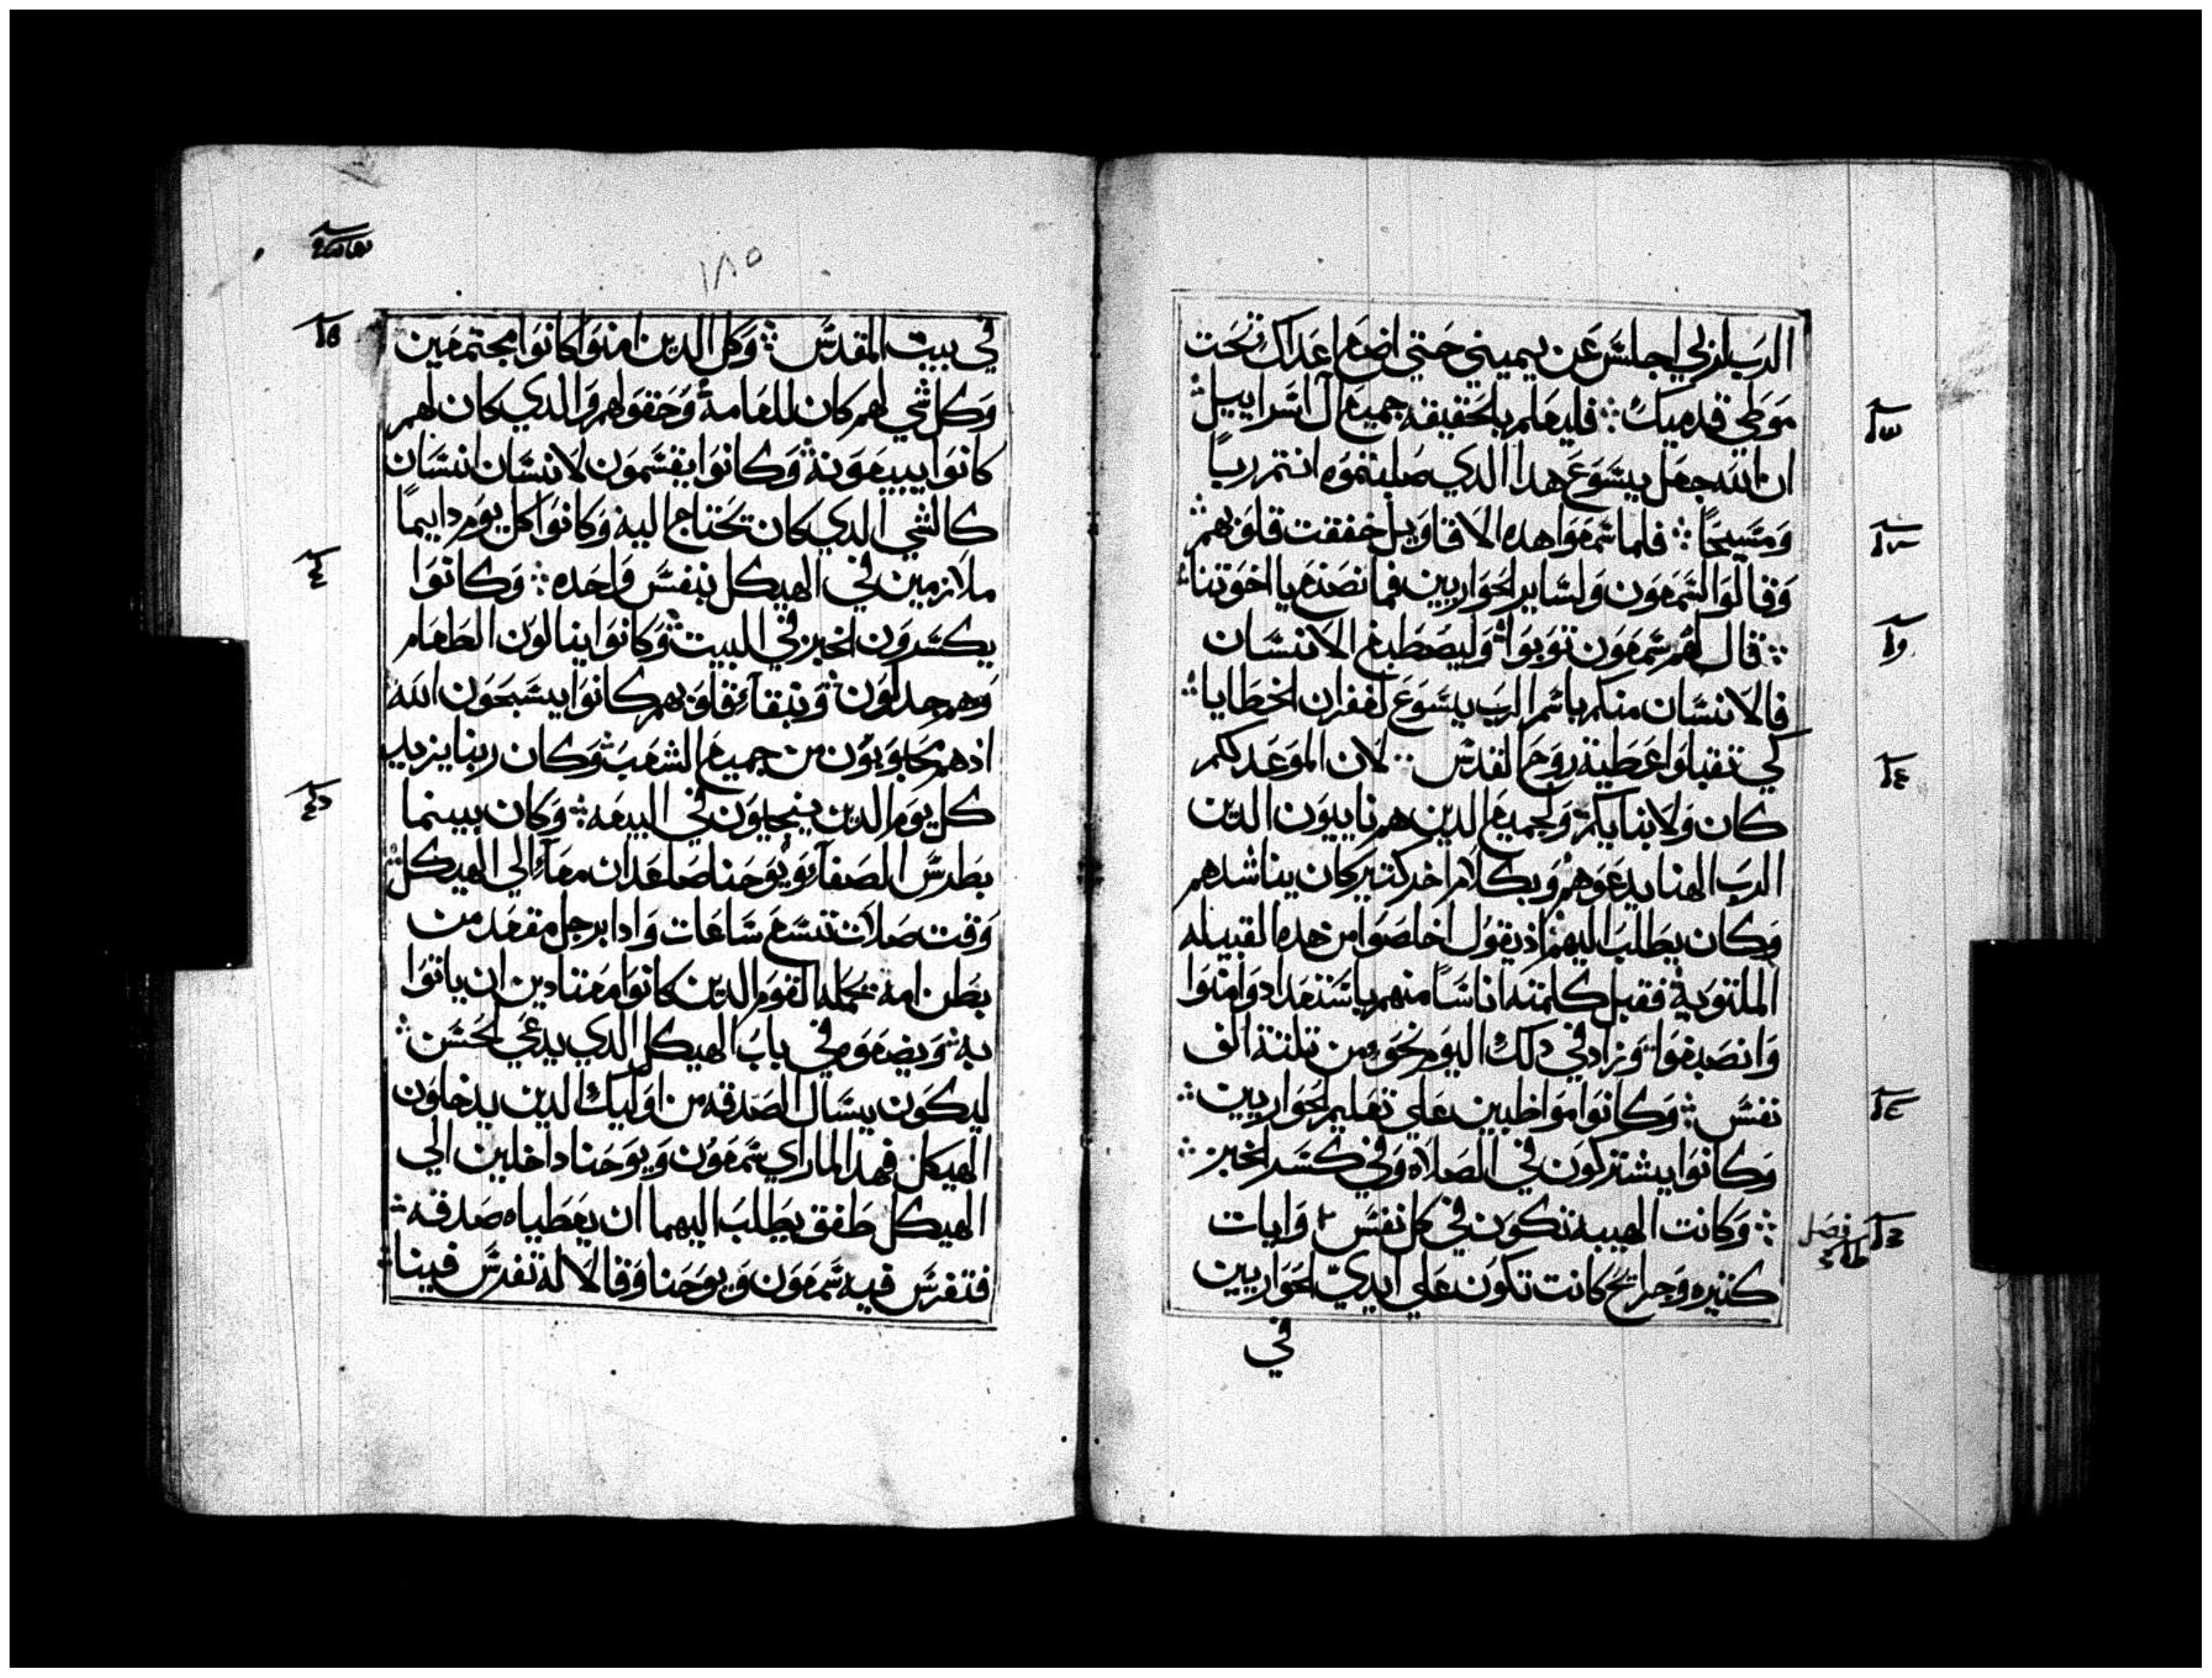 الرب لربي اجلس عن يميني حتي اضع اعداك تحت
موطي قدميك ⁘ فليعلم بالحقيقه جميع ال اسراييل
ان الله جعل يسوع هدا الدي صلبتموه انتم ربًا
ومسيحًا ⁘ فلما سمعوا هده الاقاويل خفقت قلوبهم
وقالوا لشمعون ولساير الحواريين فما نصنع يا اخوتنا
⁘ قال لهم شمعون توبوا وليصطبغ الانسان
فالانسان منكم باسم الرب يسوع لغفران الخطايا
كي تقبلوا عطية روح القدس لان الموعد لكم
كان ولابنايكم ولجميع الدين هم ناييون الدين
الرب الهنا يدعوهم وبكلام اخر كتير كان يناشدهم
وكان يطلب اليهم اذ يقول اخلصوا من هده القبيله
الملتوية فقبل كلمته اناسًا منهم باستعداد وامنوا
وانصبغوا وزاد في دلك اليوم نحو من تلتة الف
نفس ⁘ وكانوا مواظبين علي تعليم الحواريين
وكانوا يشتركون في الصلاة وفي كسر الخبز
⁘ وكانت الهيبه تكون في كل نفس وايات
كتيره وجرايح كانت تكون علي ايدي الحواريين
في
١٨٥
في بيت المقدس ⁘ وكل الدين امنوا كانوا مجتمعين
وكل شي لهم كان للعامة وحقولهم والدي كان لهم
كانوا يبيعونه وكانوا يقسمون لانسان انسان
كالشي الدي كان تحتاج اليه وكانوا كل يوم دايمًا
ملازمين في الهيكل بنفس واحده ⁘ وكانوا
يكسرون الخبز في البيت وكانوا ينالون الطعام
وهم جدلون وبنقاء قلوبهم كانوا يسبحون الله
اذ هم محبوبون من جميع الشعب وكان ربنا يزيد
كل يوم الدين ينجلون في البيعه ⁘ وكان بينما
بطرس الصفا ويوحنا صاعدان معًا الي الهيكل
وقت صلاة تسع ساعات وادا برجل مقعد من
بطن امه تحمله القوم الدين كانوا معتادين ان ياتوا
به ويضعوه في باب الهيكل الدي يدعي الحسن
ليكون يسال الصدقه من اوليك الدين يدخلون
الهيكل فهدا لما راي شمعون ويوحنا داخلين الي
الهيكل طفق يطلب اليهما ان يعطياه صدقه
فتفرس فيه شمعون ويوحنا وقالا له تفرس فينا